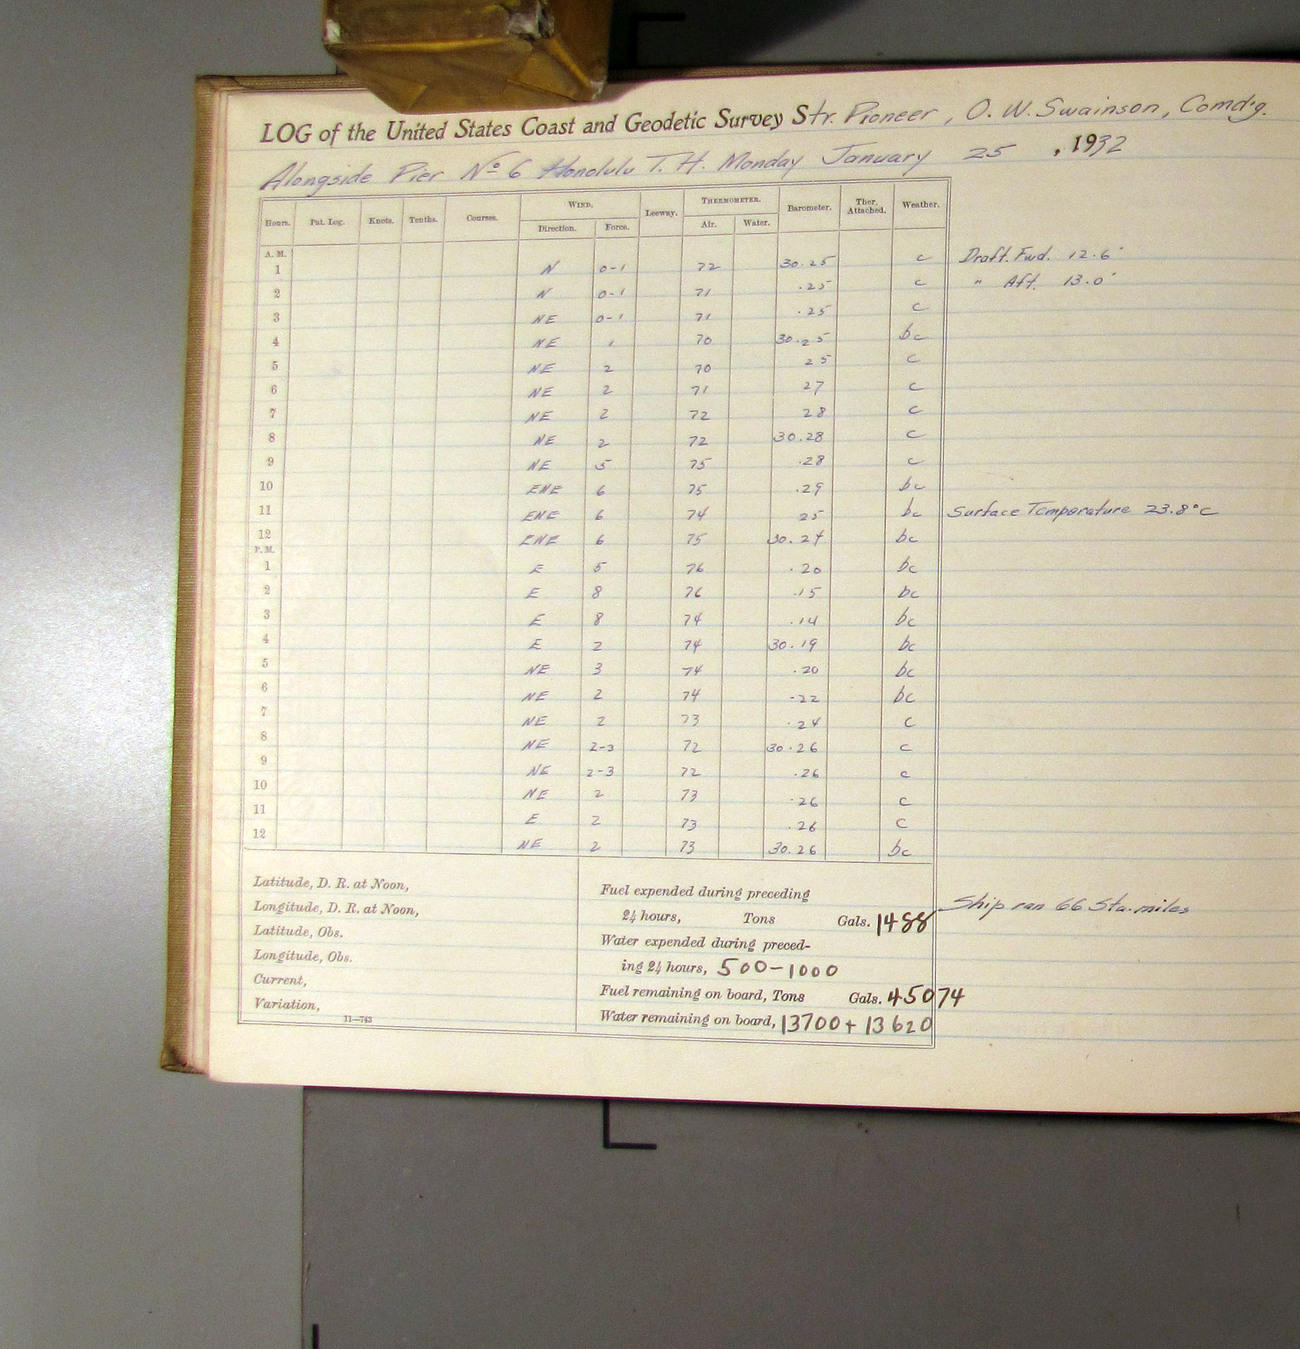 LOG of the United States Coast and Geodetic Survey Str. Pioneer, O. W. Swainson, Comd'g.
Alongside Pier No 6 Honolulu T. H. Monday January 25, 1932
Hours. Pat. Log. Knots. Tenths. Courses. WIND. Leeway. THERMOMETER. Barometer. Ther. Attached. Weather.
Direction. Force. Air. Water.
A. M.
1 N 0-1 72 30.25 c Draft. Fwd. 12.6'
2 N 0-1 71 .25 c " Aft. 13.0'
3 NE 0-1 71 .25 c
4 NE 1 70 30.25 bc
5 NE 2 70 25 c
6 NE 2 71 27 c
7 NE 2 72 28 c
8 NE 2 72 30.28 c
9 NE 5 75 .28 c
10 ENE 6 75 .29 bc
11 ENE 6 74 25 bc Surface Temperature 23.8°c
12 ENE 6 75 30.24 bc
P. M.
1 E 5 76 .20 bc
2 E 8 76 .15 bc
3 E 8 74 .14 bc
4 E 2 74 30.19 bc
5 NE 3 74 .20 bc
6 NE 2 74 -22 bc
7 NE 2 73 .24 c
8 NE 2-3 72 30.26 c
9 NE 2-3 72 .26 c
10 NE 2 73 .26 c
11 E 2 73 .26 c
12 NE 2 73 30.26 bc
Latitude, D. R. at Noon,
Longitude, D. R. at Noon,
Latitude, Obs.
Longitude, Obs.
Current,
Variation,
11—743
Fuel expended during preceding
24 hours, Tons Gals. 1488
Water expended during preced-
ing 24 hours, 500-1000
Fuel remaining on board, Tons Gals. 45074
Water remaining on board, 13700 + 13620
Ship ran 66 Sta. miles